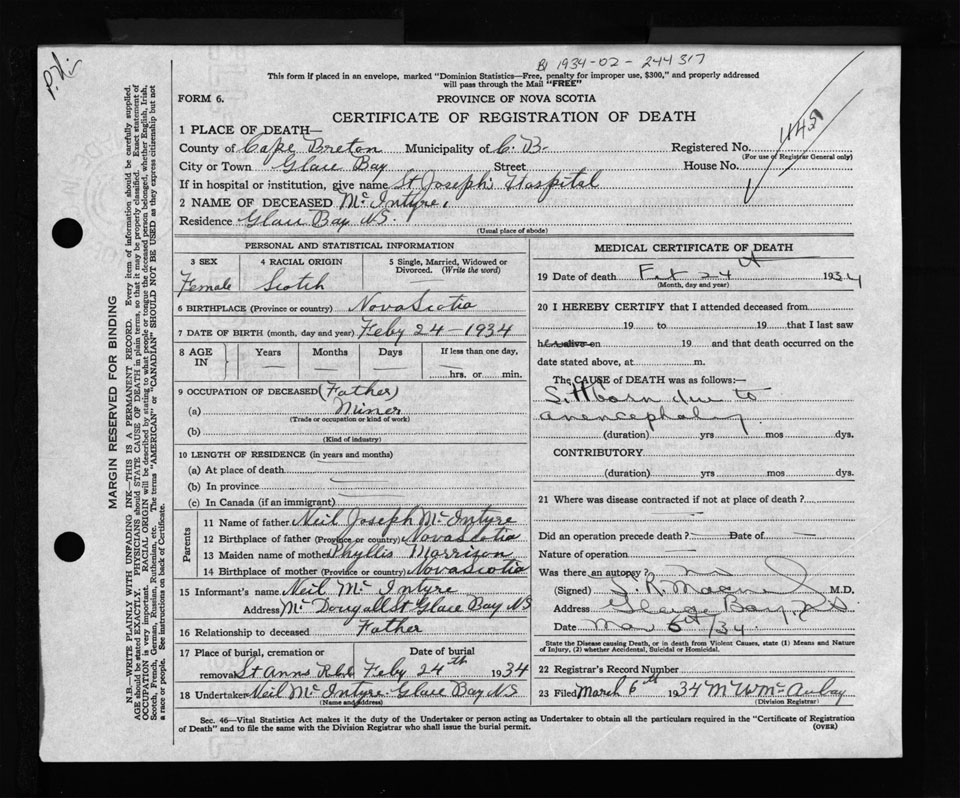 B 1934-02-244317
This form if placed in an envelope, marked "Dominion Statistics—Free, penalty for improper use, $300," and properly addressed
will pass through the Mail "FREE"
FORM 6.
PROVINCE OF NOVA SCOTIA
CERTIFICATE OF REGISTRATION OF DEATH
1 PLACE OF DEATH—
County of Cape Breton Municipality of C.B. Registered No.
(For use of Registrar General only)
City or Town Glace Bay Street House No.
If in hospital or institution, give name St Joseph's Hospital
2 NAME OF DECEASED McIntyre,
Residence Glace Bay NS.
(Usual place of abode)
PERSONAL AND STATISTICAL INFORMATION
3 SEX
Female
4 RACIAL ORIGIN
Scotch
5 Single, Married, Widowed or
Divorced. (Write the word)
—
6 BIRTHPLACE (Province or country) Nova Scotia
7 DATE OF BIRTH (month, day and year) Feby 24 - 1934
8 AGE
IN
Years
—
Months
—
Days
—
If less than one day,
hrs. or min.
9 OCCUPATION OF DECEASED (Father)
(a) Miner
(Trade or occupation or kind of work)
(b)
(Kind of industry)
10 LENGTH OF RESIDENCE (in years and months)
(a) At place of death
(b) In province
(c) In Canada (if an immigrant)
Parents
11 Name of father Neil Joseph McIntyre
12 Birthplace of father (Province or country) Nova Scotia
13 Maiden name of mother Phyllis Morrison
14 Birthplace of mother (Province or country) Nova Scotia
15 Informant's name Neil McIntyre
Address McDougall St Glace Bay NS
16 Relationship to deceased Father
17 Place of burial, cremation or Date of burial
removal St Anns Feby 24th 1934
18 Undertaker Neil McIntyre - Glace Bay NS
(Name and address)
MEDICAL CERTIFICATE OF DEATH
19 Date of death Feb 24 1934
(Month, day and year)
20 I HEREBY CERTIFY that I attended deceased from
19 to 19 that I last saw
h alive on 19 and that death occurred on the
date stated above, at m.
The CAUSE of DEATH was as follows:—
Stillborn due to
anencephaley
(duration) yrs mos dys.
CONTRIBUTORY
(duration) yrs mos dys.
21 Where was disease contracted if not at place of death?
Did an operation precede death? — Date of —
Nature of operation —
Was there an autopsy? no
(Signed) M.D.
Address Glace Bay, N.S.
Date Mar 6th/34
State the Disease causing Death, or in death from Violent Causes, state (1) Means and Nature
of Injury, (2) whether Accidental, Suicidal or Homicidal.
22 Registrar's Record Number
23 Filed March 6th 1934
(Division Registrar)
Sec. 46—Vital Statistics Act makes it the duty of the Undertaker or person acting as Undertaker to obtain all the particulars required in the "Certificate of Registration
of Death" and to file the same with the Division Registrar who shall issue the burial permit.
(OVER)
MARGIN RESERVED FOR BINDING
N.B.—WRITE PLAINLY WITH UNFADING INK—THIS IS A PERMANENT RECORD. Every item of information should be carefully supplied.
AGE should be stated EXACTLY. PHYSICIANS should STATE CAUSE OF DEATH in plain terms, so that it may be properly classified. Exact statement of
OCCUPATION is very important. RACIAL ORIGIN will be described by stating to what people or tongue the deceased person belonged, whether English, Irish,
Scotch, French, German, Russian, Ruthenian, etc. The terms "AMERICAN" or "CANADIAN" SHOULD NOT BE USED as they express citizenship but not
a race or people. See instructions on back of Certificate.